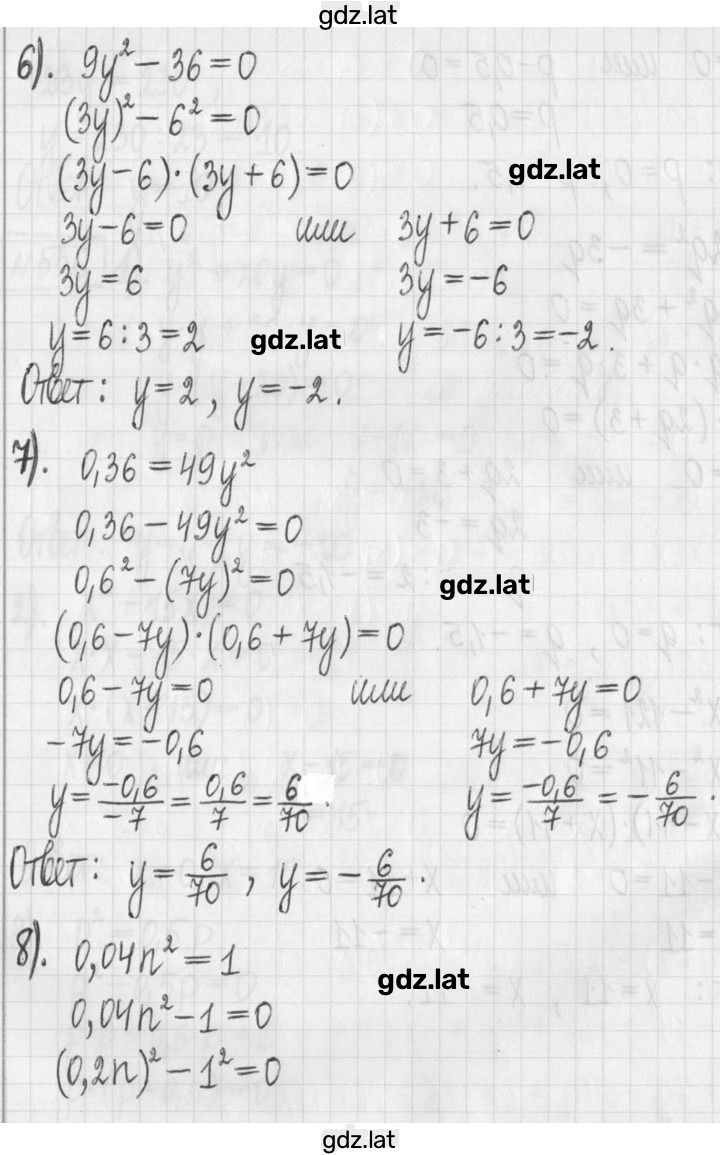 gdz.lat
6). 9y² − 36 = 0
(3y)² − 6² = 0
(3y − 6)·(3y + 6) = 0 gdz.lat
3y − 6 = 0 или 3y + 6 = 0
3y = 6 3y = −6
y = 6 : 3 = 2 gdz.lat y = −6 : 3 = −2.
Ответ: y = 2, y = −2.
7). 0,36 = 49y²
0,36 − 49y² = 0
0,6² − (7y)² = 0 gdz.lat
(0,6 − 7y)·(0,6 + 7y) = 0
0,6 − 7y = 0 или 0,6 + 7y = 0
−7y = −0,6 7y = −0,6
y = −0,6/−7 = 0,6/7 = 6/70. y = −0,6/7 = −6/70.
Ответ: y = 6/70, y = −6/70.
8). 0,04n² = 1
0,04n² − 1 = 0 gdz.lat
(0,2n)² − 1² = 0
gdz.lat